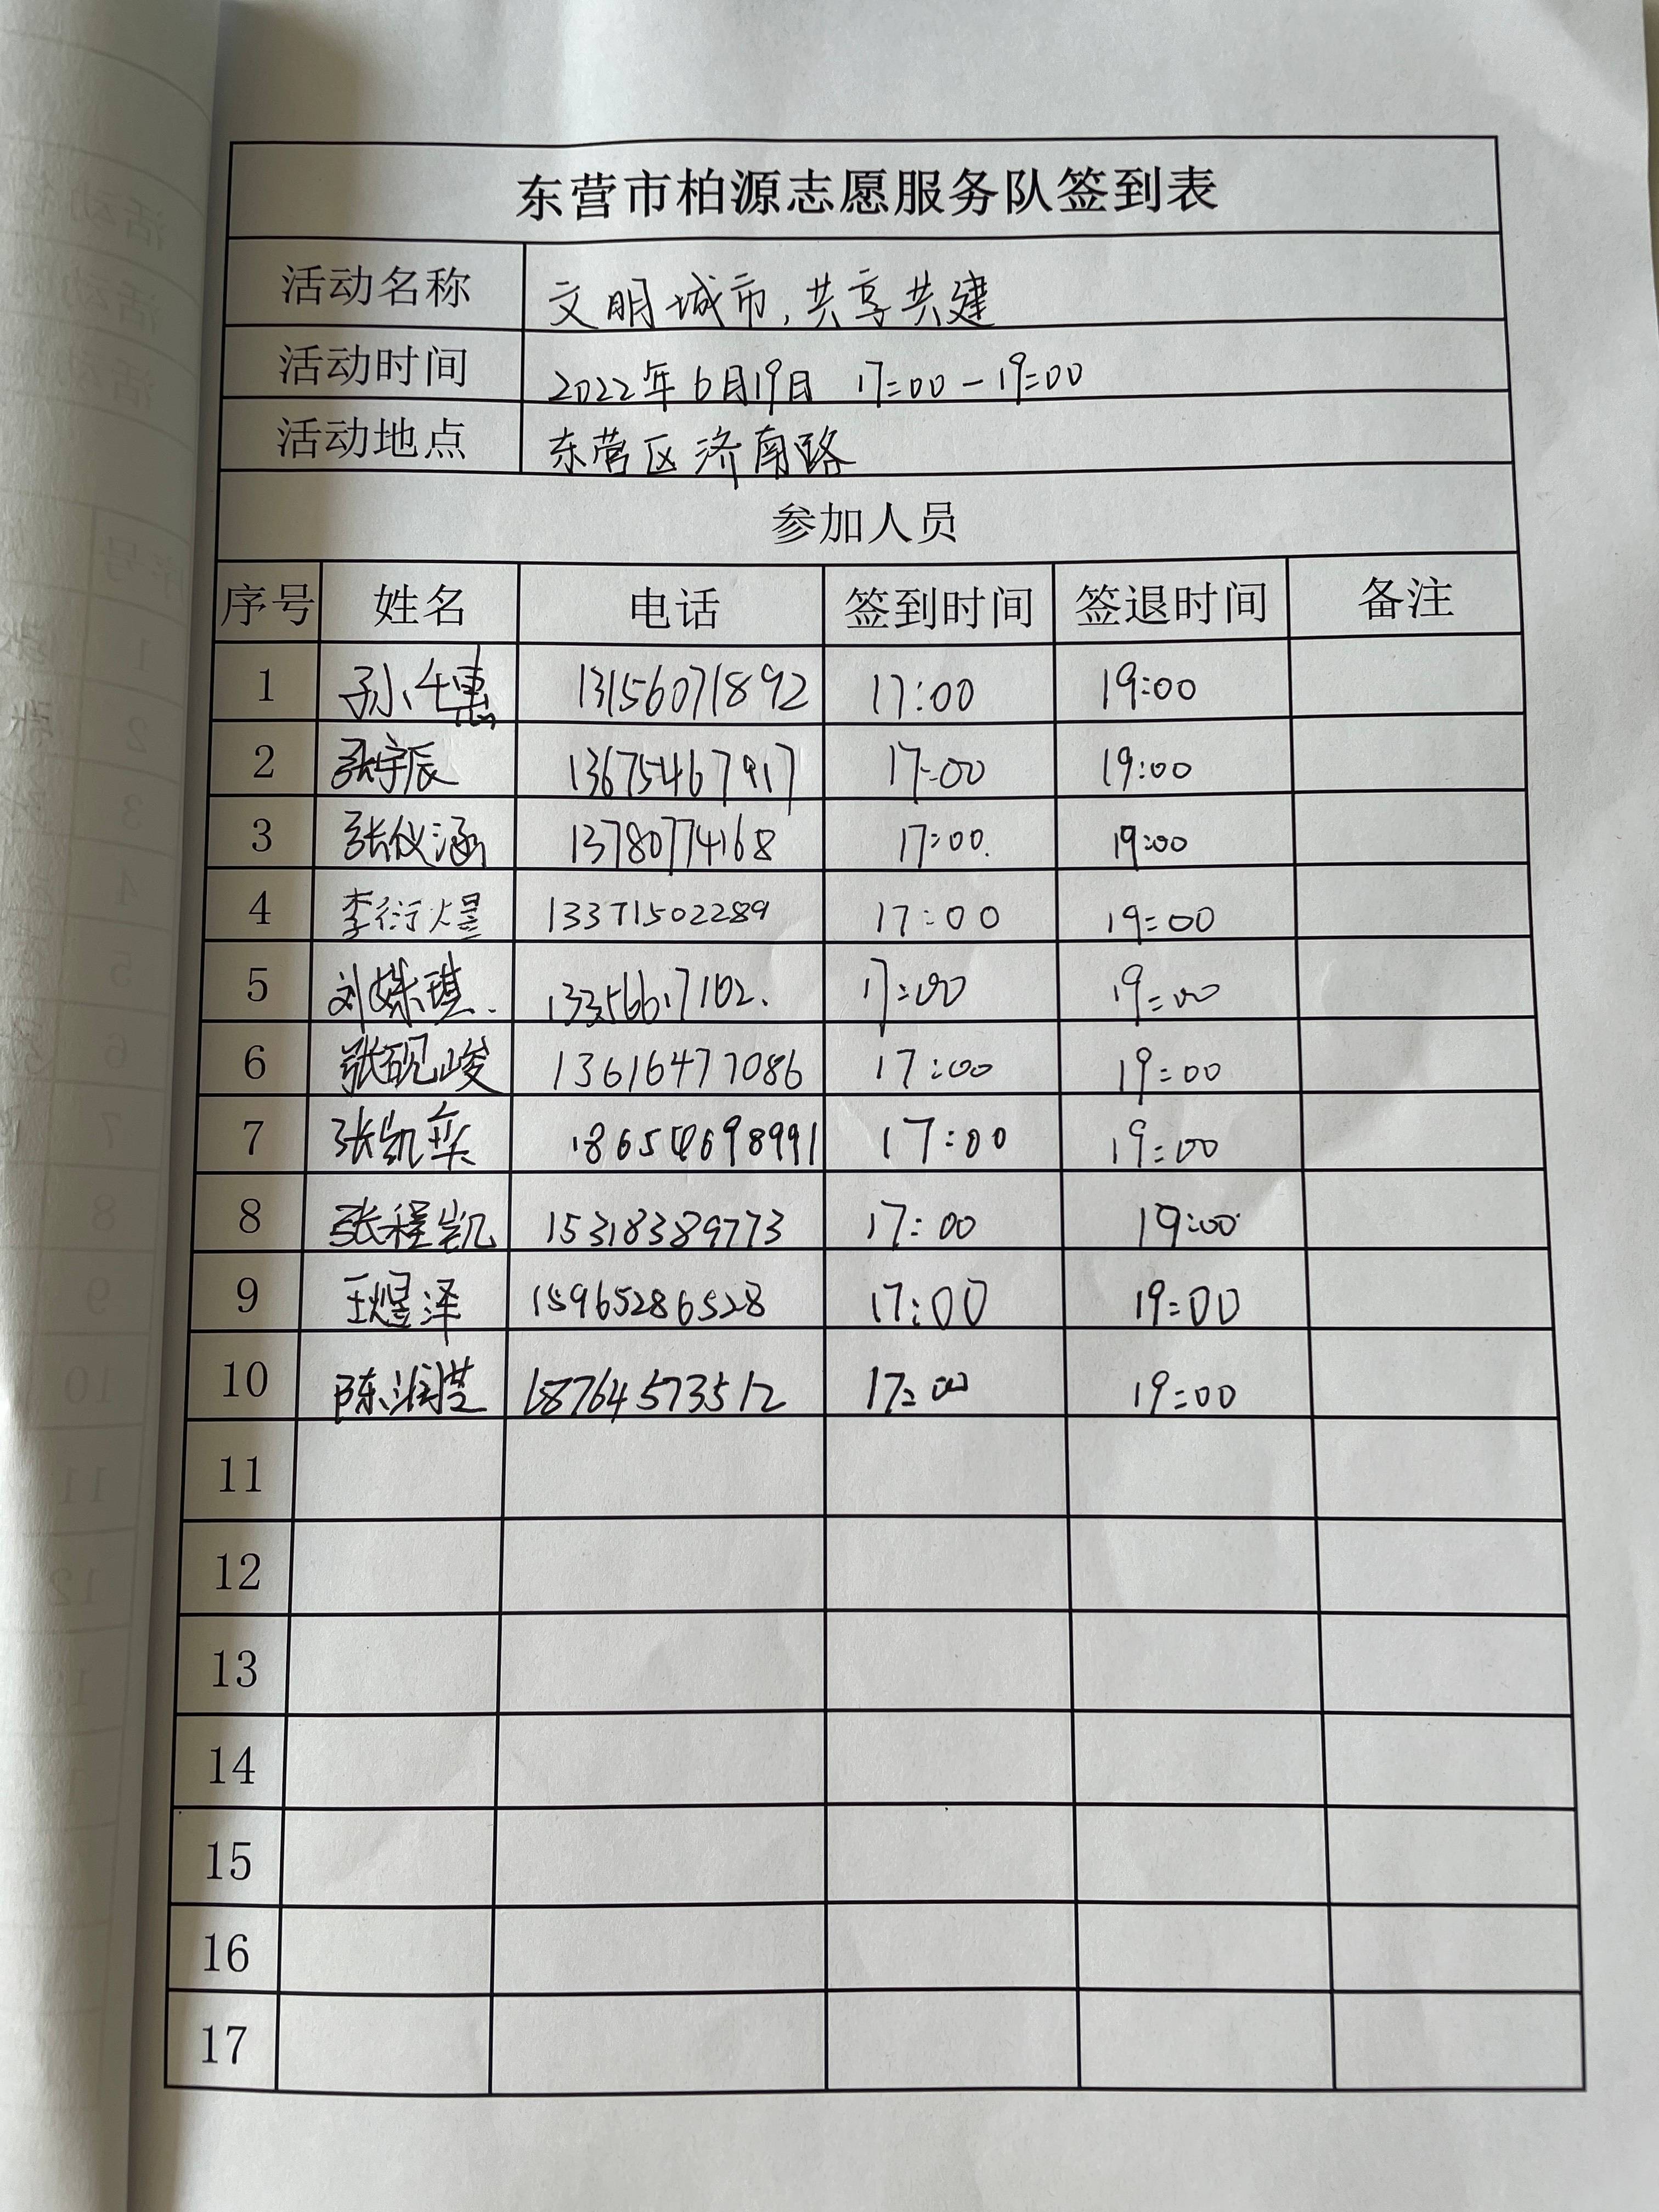 东营市柏源志愿服务队签到表
活动名称 文明城市，共享共建
活动时间 2022年6月19日 17:00-19:00
活动地点 东营区济南路
参加人员
序号 姓名 电话 签到时间 签退时间 备注
1 13156071892 17:00 19:00
2 张宇辰 13675467917 17:00 19:00
3 张仪涵 13780774168 17:00. 19:00
4 李衍煜 13371502289 17:00 19:00
5 刘姝琪. 17:00 19:00
6 张砚峻 13616477086 17:00 19:00
7 张凯奕 18654698991 17:00 19:00
8 张程凯 15318389773 17:00 19:00
9 王煜泽 15965286528 17:00 19:00
10 18764573512 17:00 19:00
11
12
13
14
15
16
17